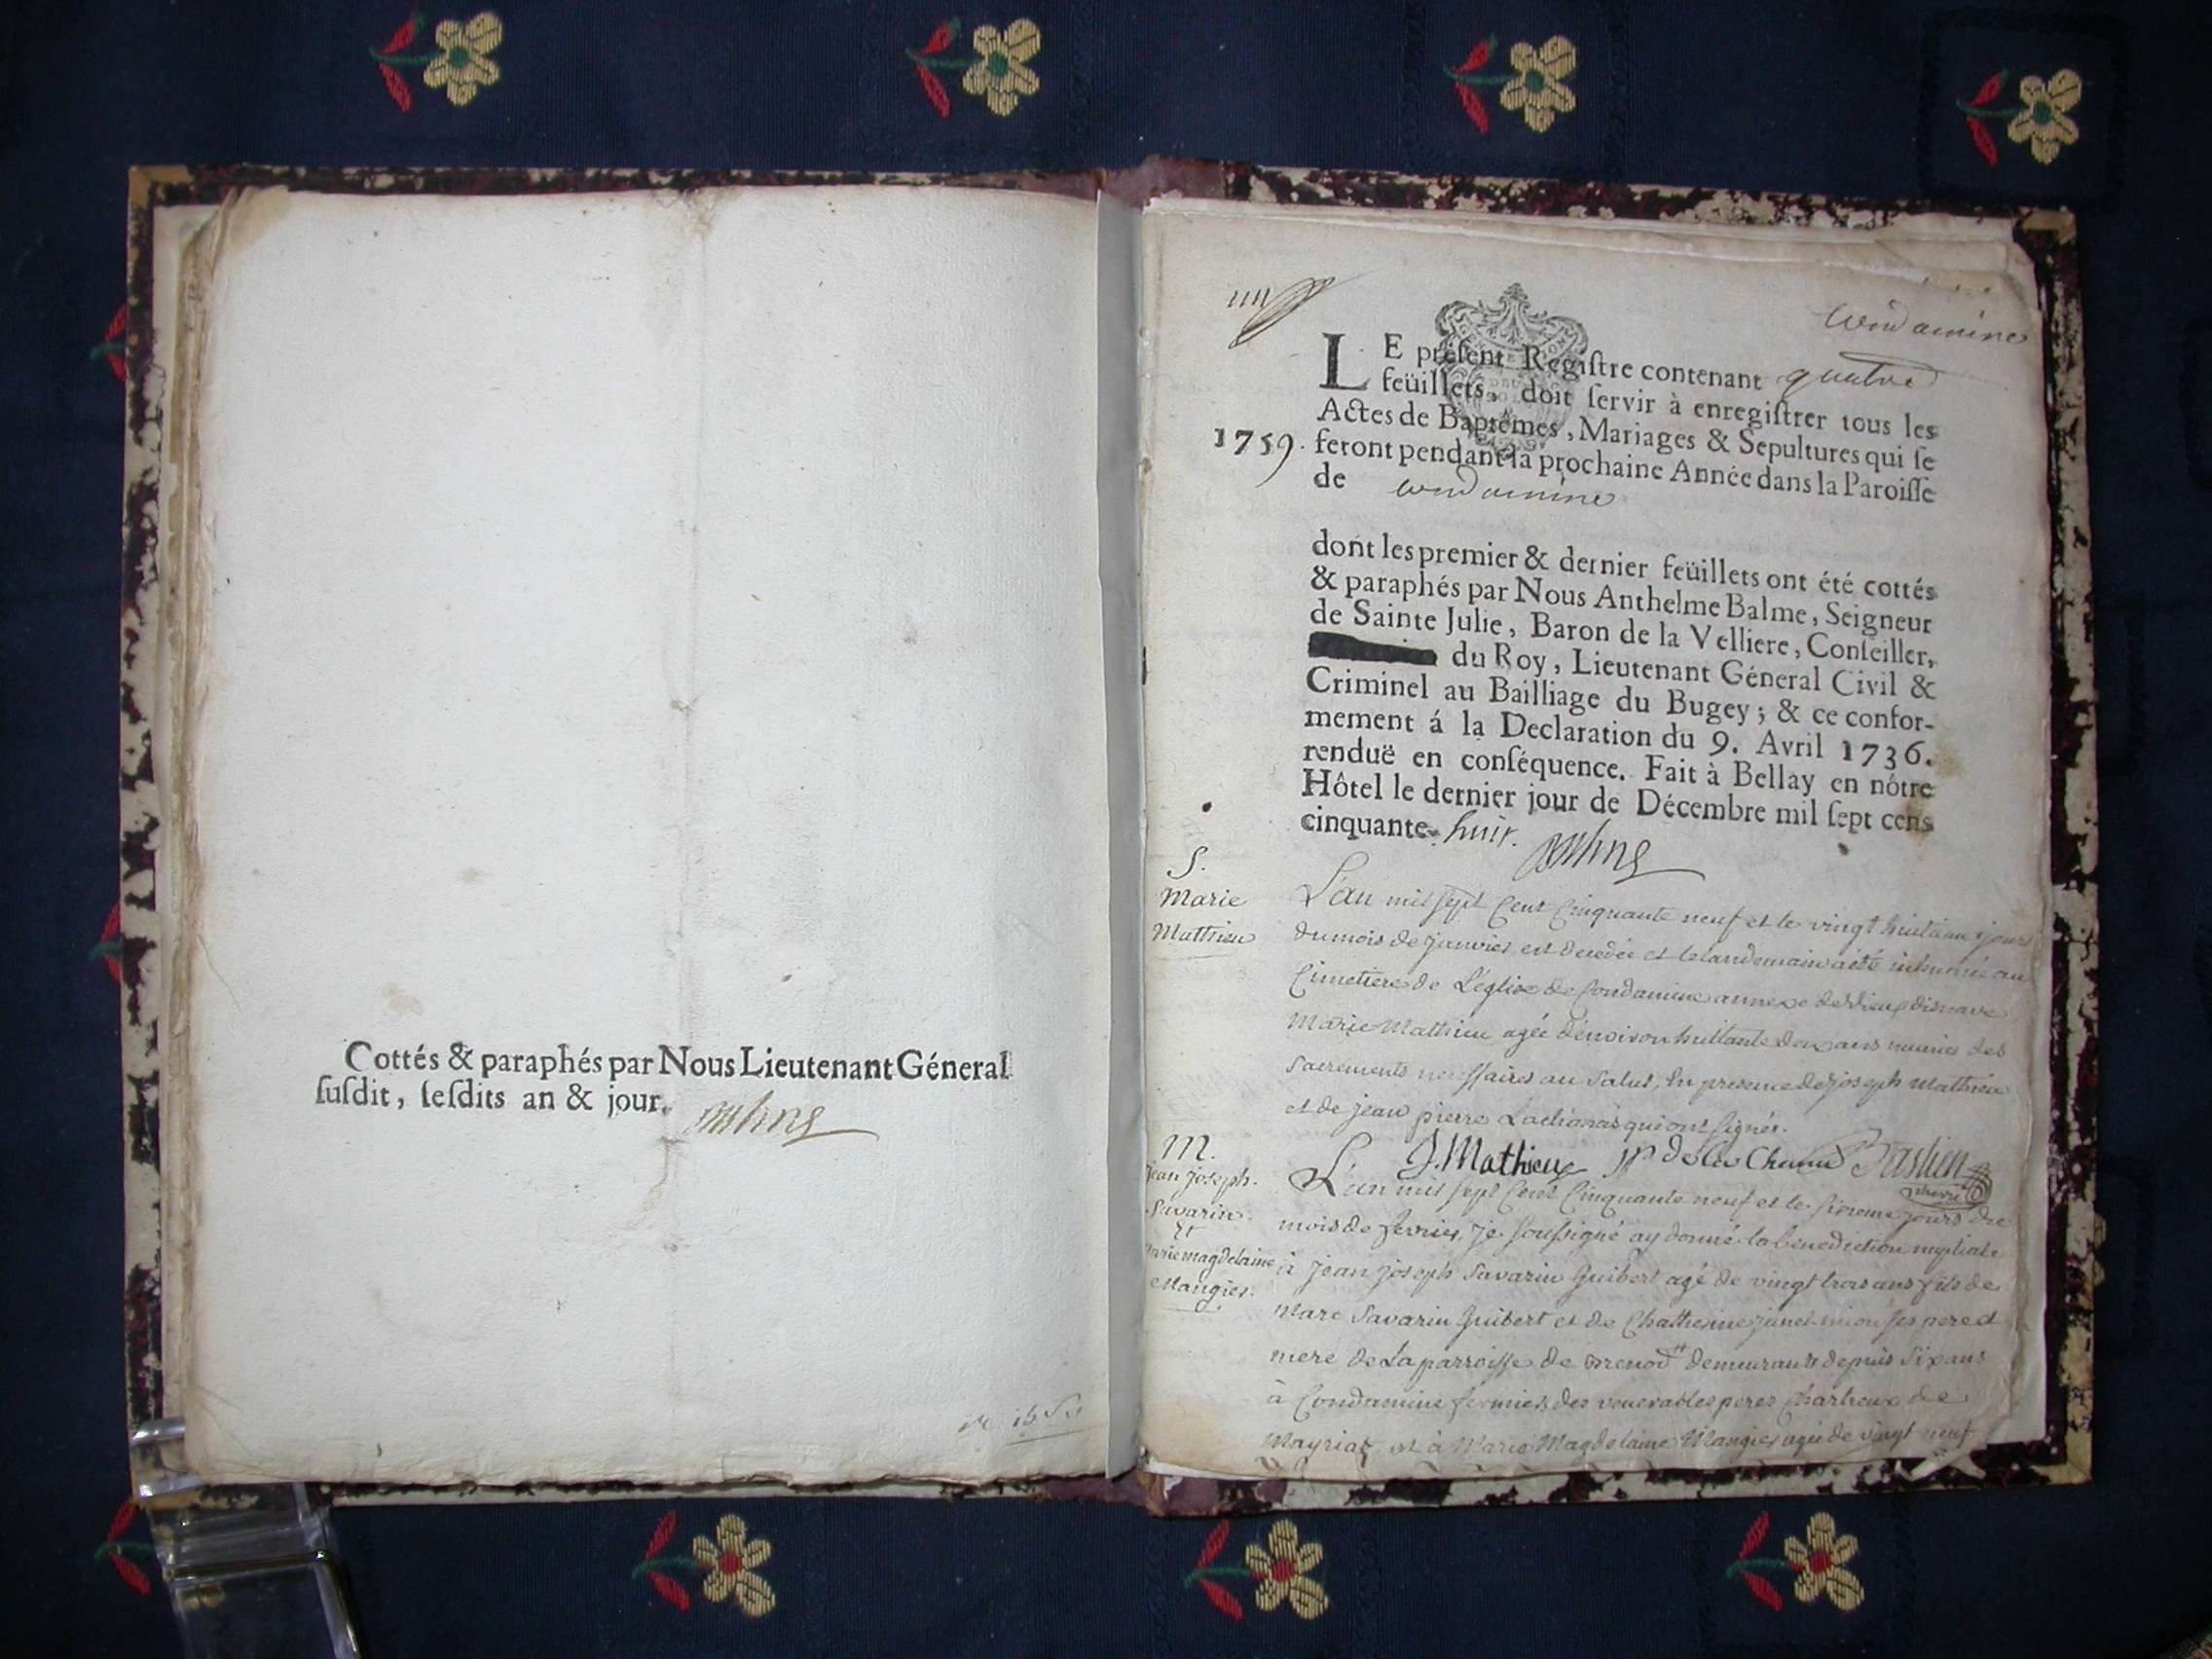 Cottés & paraphés par Nous Lieutenant Géneral
ſuſdit, leſdits an & jour.
Condamine
LE preſent Regiſtre contenant quatre
feüillets, doit ſervir à enregiſtrer tous les
Actes de Baptêmes, Mariages & Sepultures qui ſe
1759.
feront pendant la prochaine Année dans la Paroiſſe
de Condamine
dont les premier & dernier feüillets ont été cottés
& paraphés par Nous Anthelme Balme, Seigneur
de Sainte Julie, Baron de la Velliere, Conſeiller,
du Roy, Lieutenant Géneral Civil &
Criminel au Bailliage du Bugey; & ce confor-
mement á la Declaration du 9. Avril 1736.
renduë en conſéquence. Fait à Bellay en nôtre
Hôtel le dernier jour de Décembre mil ſept cens
cinquante-huit.
S.
Marie
Mathieu
L'an mil sept cent cinquante neuf et le vingt huitieme jours
du mois de janvier est decedée et le landemain a été inhumée au
Cimetiere de L'église de Condamine annexe de Vieux disnave
Marie Mathieu agée d'environ huittante deux ans munies des
Sacrements necessaires au Salut, En presence de joseph Mathieu
et de jean pierre Lachana qui ont signés.
J. Mathieu jp de la Chana Bastien
M.
jean joseph.
Savarin
et
marie magdelaine
Mangier.
L'an mil sept cent cinquante neuf et le sixieme jours du
mois de fevrier, je soussigné ay donné la benediction nuptiale
à jean joseph Savarin Guibert agé de vingt trois ans fils de
Marc Savarin Guibert et de Chatherine ses pere et
mere de La parroisse de Brenod demeurants depuis six ans
à Condamine fermier des venerables peres chartreux de
Mayriat, et à Marie Magdelaine Mangier agée de vingt neuf